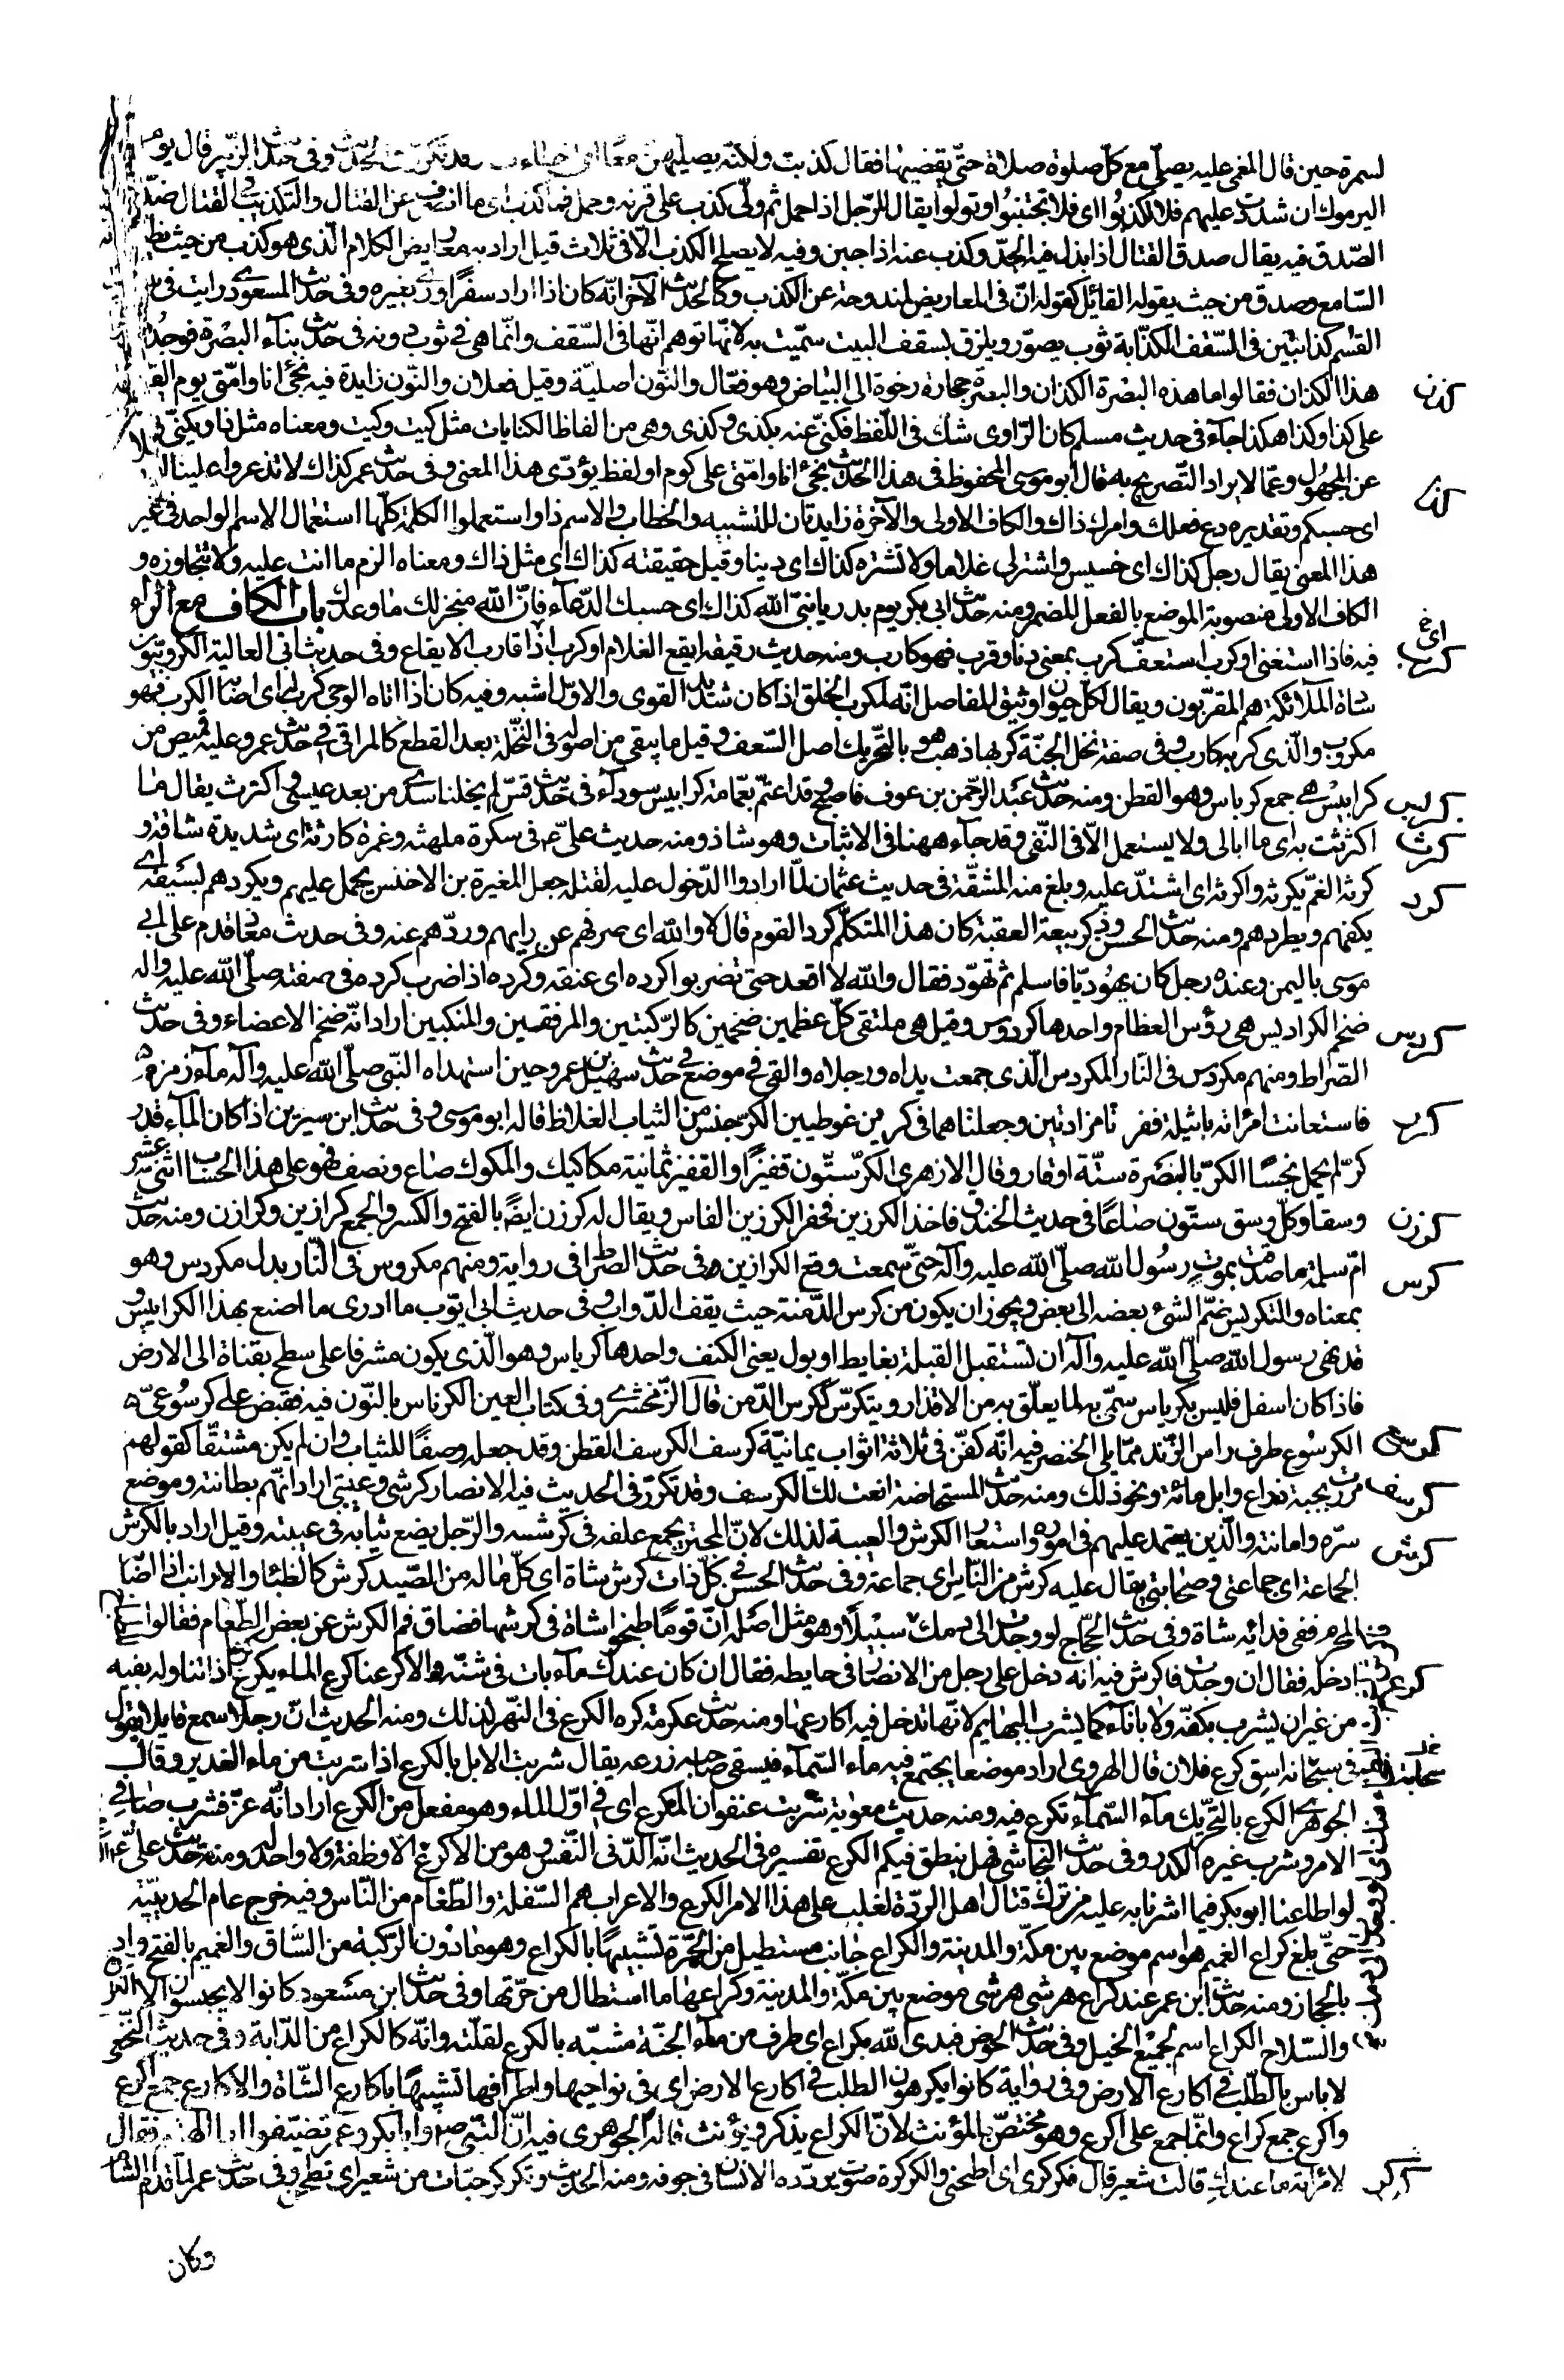 لسمرة حين قال المغمى عليه يصلّى مع كلّ صلوة صلاة حتّى يقضيها فقال كذبت ولكنّه يصليهنّ معًا اى اخطاءت وقد تكرّرت فى الحديث وفى حديث الزبير قال يوم
اليرموك ان شددت عليهم فلا تكذبُوا اى فلا تجتنبُوا وتولوا يقال للرّجل اذا حمل ثم ولّى كذب على قرنه وحمل فما كذب اى ما انصرف عن القتال والتكذيب فى القتال ضدّ
الصّدق فيه يقال صدق القتال اذا بذل فيه الجدّ وكذب عنه اذا جبن وفيه لا يصلح الكذب الّا فى ثلاث قيل اراد به معاريض الكلام الّذى هو كذب من حيث يظنه
السّامع وصدق من حيث يقوله القائل كقوله انّ فى المعاريض لمندوحة عن الكذب وكالحديث الآخر انّه كان اذا اراد سفرًا ورّى بغيره وفى حديث المسعودى رايت فى بيت
القسم كذابتين فى السّقف الكذّابة ثوب يصوّر ويلزق بسقف البيت سمّيت به لانّها توهم انّها فى السّقف وانّما هى فى ثوب دونه فى حديث بناء البصْرة فوجدُوا
كذن هذا الكذان فقالوا ما هذه البصْرة الكذان والبصرة حجارة رخوة الى البياض وهو فعّال والنّون اصليّة وقيل فعلان والنّون زايدة فيه نجئ انا وامّتى يوم القيمة
على كذا وكذا هكذا جآء فى حديث مسلم كان الرّاوى شك فى اللّفظ فكنّى عنه بكذى وكذى وهى من الفاظ الكنايات مثل كيت وكيت ومعناه مثل ذا ويكنّى بها
كذا عن المجهُول وعمّا لا يراد التّصريح به قال ابو موسى المحفوظ فى هذا الحديث نجئ انا وامّتى على كوم او لفظ يؤدّى هذا المعنى وفى حديث عمر كذاك لا تذعروا علينا
اى حسبكم وتقديره دع فعلك وامرك ذاك والكاف الاولى والآخرة زايدتان للتشبيه والخطاب والاسم ذا واستعملوا الكلمة كلّها استعمال الاسم لواحد فى غير
هذا المعنى يقال رجل كذاك اى خسيس واشترلى غلاما ولا تشتره كذاك اى دينا وقيل حقيقته كذاك اى مثل ذاك ومعناه الزم ما انت عليه ولا تتجاوزه و
الكاف الاولى منصوبة الموضع بالفعل المضمر ومنه حديث ابى بكر يوم بدر يا نبىّ اللّه كذاك اى حسبك الدّعآء فانّ اللّه منجز لك ما وعدك باب الكاف مع الرّاء
كرب فيه فاذا استغنى او كرب استعفّ كرب بمعنى دنا وقرب فهو كارب ومنه حديث رقيقة ايفع الغلام او كرب اذا قارب الايفاع وفى حديث ابى العالية الكروبيّون
سادة الملآئكة هم المقرّبون ويقال لكلّ حيوان وثيق المفاصل انّه لمكرب الخلق اذا كان شديد القوى والاوّل اشبه وفيه كان اذا اتاه الوحى كرب له اى اصابه الكرب فهو
مكروب والّذى كربه كارب وفى صفة نخل الجنّة كربها ذهب هو بالتّحريك اصل السّعف وقيل ما يبقى من اصوله فى النّخلة بعد القطع كالمراقى فى حديث عمر وعليه قميص من
كربس كرابيسْ هى جمع كرباس وهو القطن ومنه حديث عبْد الرّحمن بن عوف فاصبح وقد اعتمّ بعمامة كرابيس سودآء فى حديث قسّ لم يخلنا سدى من بعد عيسى واكترث يقال ما
كرث اكترثت به اى ما ابالى ولا يستعمل الّا فى النّفى وقد جآء ههنا فى الاثبات وهو شاذ ومنه حديث علىّ ع فى سكرة ملهثة وغمرة كارثة اى شديدة شاقة و
كرد كرثه الغمّ يكرثه واكرثه اى اشتدّ عليه وبلغ منه المشقّة فى حديث عثمان لمّا ارادوا الدّخول عليه لقتله جعل المغيرة بن الاخنس يحمل عليهم ويكردهم بسيفه اى
يكفهم ويطردهم ومنه حديث الحسن وذكر بيعة العقبة كان هذا المتكلّم كرد القوم قال لا واللّه اى صرفهم عن رايهم وردّهم عنه وفى حديث معاذ قدم على ابى
موسى باليمن وعنده رجل كان يهُوديّا فاسلم ثم تهوّد فقال واللّه لا اقعد حتى تضربوا كرده اى عنقه وكرده اذا ضرب كرده فى صفته صلّى اللّه عليه واله
كردس ضخم الكراديس هى رؤس العظام واحدها كردوس وقيل هى ملتقى كلّ عظمين ضخمين كالرّكبتين والمرفقين والمنكبين اراد انّه ضخم الاعضاء وفى حديث
الصّراط ومنهم مكردس فى النّار المكردس الّذى جمعت يداه ورجلاه والقى فى موضع فى حديث سهيل بن عمرو حين استهداه النّبى صلّى اللّه عليه وآله مآء زمزم
كرر فاستعانت امْراته باثيلة ففرتا مزادتين وجعلتاهما فى كرين غوطيين الكرّ جنس من الثياب الغلاظ قاله ابو موسى وفى حديث ابن سيرين اذا كان المآء قدر
كرّ لم يحمل نجسًا الكرّ بالبصْرة ستّة اوقار وقال الازهرى الكرّ ستّون قفيزًا والقفيز ثمانية مكاكيك والمكوك صاع ونصف فهو على هذا الحساب اثنى عشر
كرزن وسقا وكلّ وسق ستّون صاعًا فى حديث الخندق فاخذ الكرزين فحفر الكرزين الفاس ويقال له كرزن ايضًا بالفتح والكسر والجمع كرازين وكرازن ومنه حديث
كرس امّ سلمة ما صدقت بموت رسُول اللّه صلّى اللّه عليه وآله حتىّ سمعت وقع الكرازين فى حديث الصّراط فى رواية ومنهم مكروس فى النّار بدل مكردس وهو
بمعناه والتكريس ضمّ الشئ بعضه الى بعض ويجوز ان يكون من كرس الدّمنة حيث يقف الدّواب وفى حديث ابى ايّوب ما ادرى ما اصنع بهذا الكراييس و
قد نهى رسول اللّه صلّى اللّه عليه وآله ان تستقبل القبلة بغايط او بول يعنى الكنف واحدها كرياس وهو الّذى يكون مشرفا على سطح بقناة الى الارض
فاذا كان اسفل فليس بكرياس سمّى به لما يعلّق به من الاقذار ويتكرّس ككرس الدّمن قال الزّمخشرى وفى كتاب العين الكرناس بالنّون فيه فقبض على كرسُوعى
كرسع الكرسُوع طرف راس الزّند ممّا يلى الخنصر فيه انّه كفّن فى ثلاثة اثواب يمانيّة كرسف الكرسف القطن وقد جعله وصفًا للثياب وان لم يكن مشتقّا كقولهم
كرسف مررت بحية ذراع وابل مائة ونحو ذلك ومنه حديث المستحاضة انعت لك الكرسف وقد تكرّر فى الحديث فيه الانصار كرشى وعيبتى اراد انّهم بطانته وموضع
كرش سرّه وامانته والّذين يعتمد عليهم فى اموره واستعار الكرش والعيبة لذلك لانّ المجتر يجمع علفه فى كرشه والرّجل يضع ثيابه فى عيبته وقيل اراد بالكرش
الجماعة اى جماعتى وصحابتى يقال عليه كرش من النّاس اى جماعة وفى حديث الحسن فى كلّ ذات كرش شاة اى كلّ ماله من الصّيد كرش كالظباء والارانب اذا اصابه
المحرم ففى فدائه شاة وفى حديث الحجّاج لو وجدت الى دمك سبيْلًا وهو مثل اصْله انّ قومًا طبخوا شاة فى كرشها فضاق فم الكرش عن بعض الطّعام فقالوا
كرع ادخله فقال ان وجدت فاكرش فيه انه دخل على رجل من الانصار فى حايطه فقال ان كان عندك مآء بات فى شنّه والّا كرعنا كرع الماء يكرع اذا تناوله بفيه
من غير ان يشرب بكفّه ولا باناء كما يشرب البهايم لانّها تدخل فيه اكارعها ومنه حديث عكرمة كره الكرع فى النّهر لذلك ومنه الحديث انّ رجلا سمع قايلا يقول
فى سحابة اسق كرع فلان قال الهروى اراد موضعا يجتمع فيه ماء السّمآء فيسقى صاحبه زرعه يقال شربت الابل بالكرع اذا شربت من ماء الغدير وقال
الجوهرى الكرع بالتّحريك مآء السّمآء تكرع فيه ومنه حديث معوية شربت عنفوان المكرع اى فى اوّل الماء وهو مفعل من الكرع اراد انّه عزّ فشرب صافى
الامر وشرب غيره الكدر وفى حديث النجاشى فهل ينطق فيكم الكرع تفسيره فى الحديث انّه الدّنى النّفس وهو من الاكرع الاوظفة ولا واحد له ومنه حديث علىّ ع
لو اطاعنا ابو بكر فيما اشرنا به عليه من ترك قتال اهل الردّة لغلب على هذا الامر الكرع والاعراب هم السّفلة والطّغام من النّاس وفيه خرج عام الحديبيّة
حتىّ بلغ كراع الغميم هو اسم موضع بين مكّة والمدينة والكراع جانب مستطيل من الحرّة تشبيهًا بالكراع وهو ما دون الرّكبة من السّاق والغميم بالفتح واد
بالحجاز ومنه حديث ابن عمر عند كراع هرشى هرشى موضع بين مكّة والمدينة وكراعها ما استطال من حرّتها وفى حديث ابن مسْعود كانوا لا يحبسون الا الكراع
والسّلاح الكراع اسم لجميْع الخيل وفى حديث الحوض فبدى اللّه بكراع اى طرف من مآء الجنّة مشبّه بالكرع لقلّته وانّه كالكراع من الدّابة وفى حديث النّخعى
لا باس بالطّلب فى اكارع الارض وفى رواية كانوا يكرهون الطلب فى اكارع الارض اى فى نواحيها واطرافها تشبيهًا باكارع الشّاة والاكارع جمع اكرع
واكرع جمع كراع وانّما جمع على اكرع وهو مختصّ بالمؤنث لانّ الكراع يذكر ويؤنث قاله الجوهرى فيه انّ النّبى ص وابا بكر وعمر تضيّفوا ابا الهيثم فقال
كركر لامْراته ما عندك قالت شعير قال فكركرى اى اطحنى والكركرة صوت يردّده الانسان فى جوفه ومنه الحديث وتكركر حبّات من شعير اى تطحن وفى حديث عمر لمّا قدم الشام
وكان